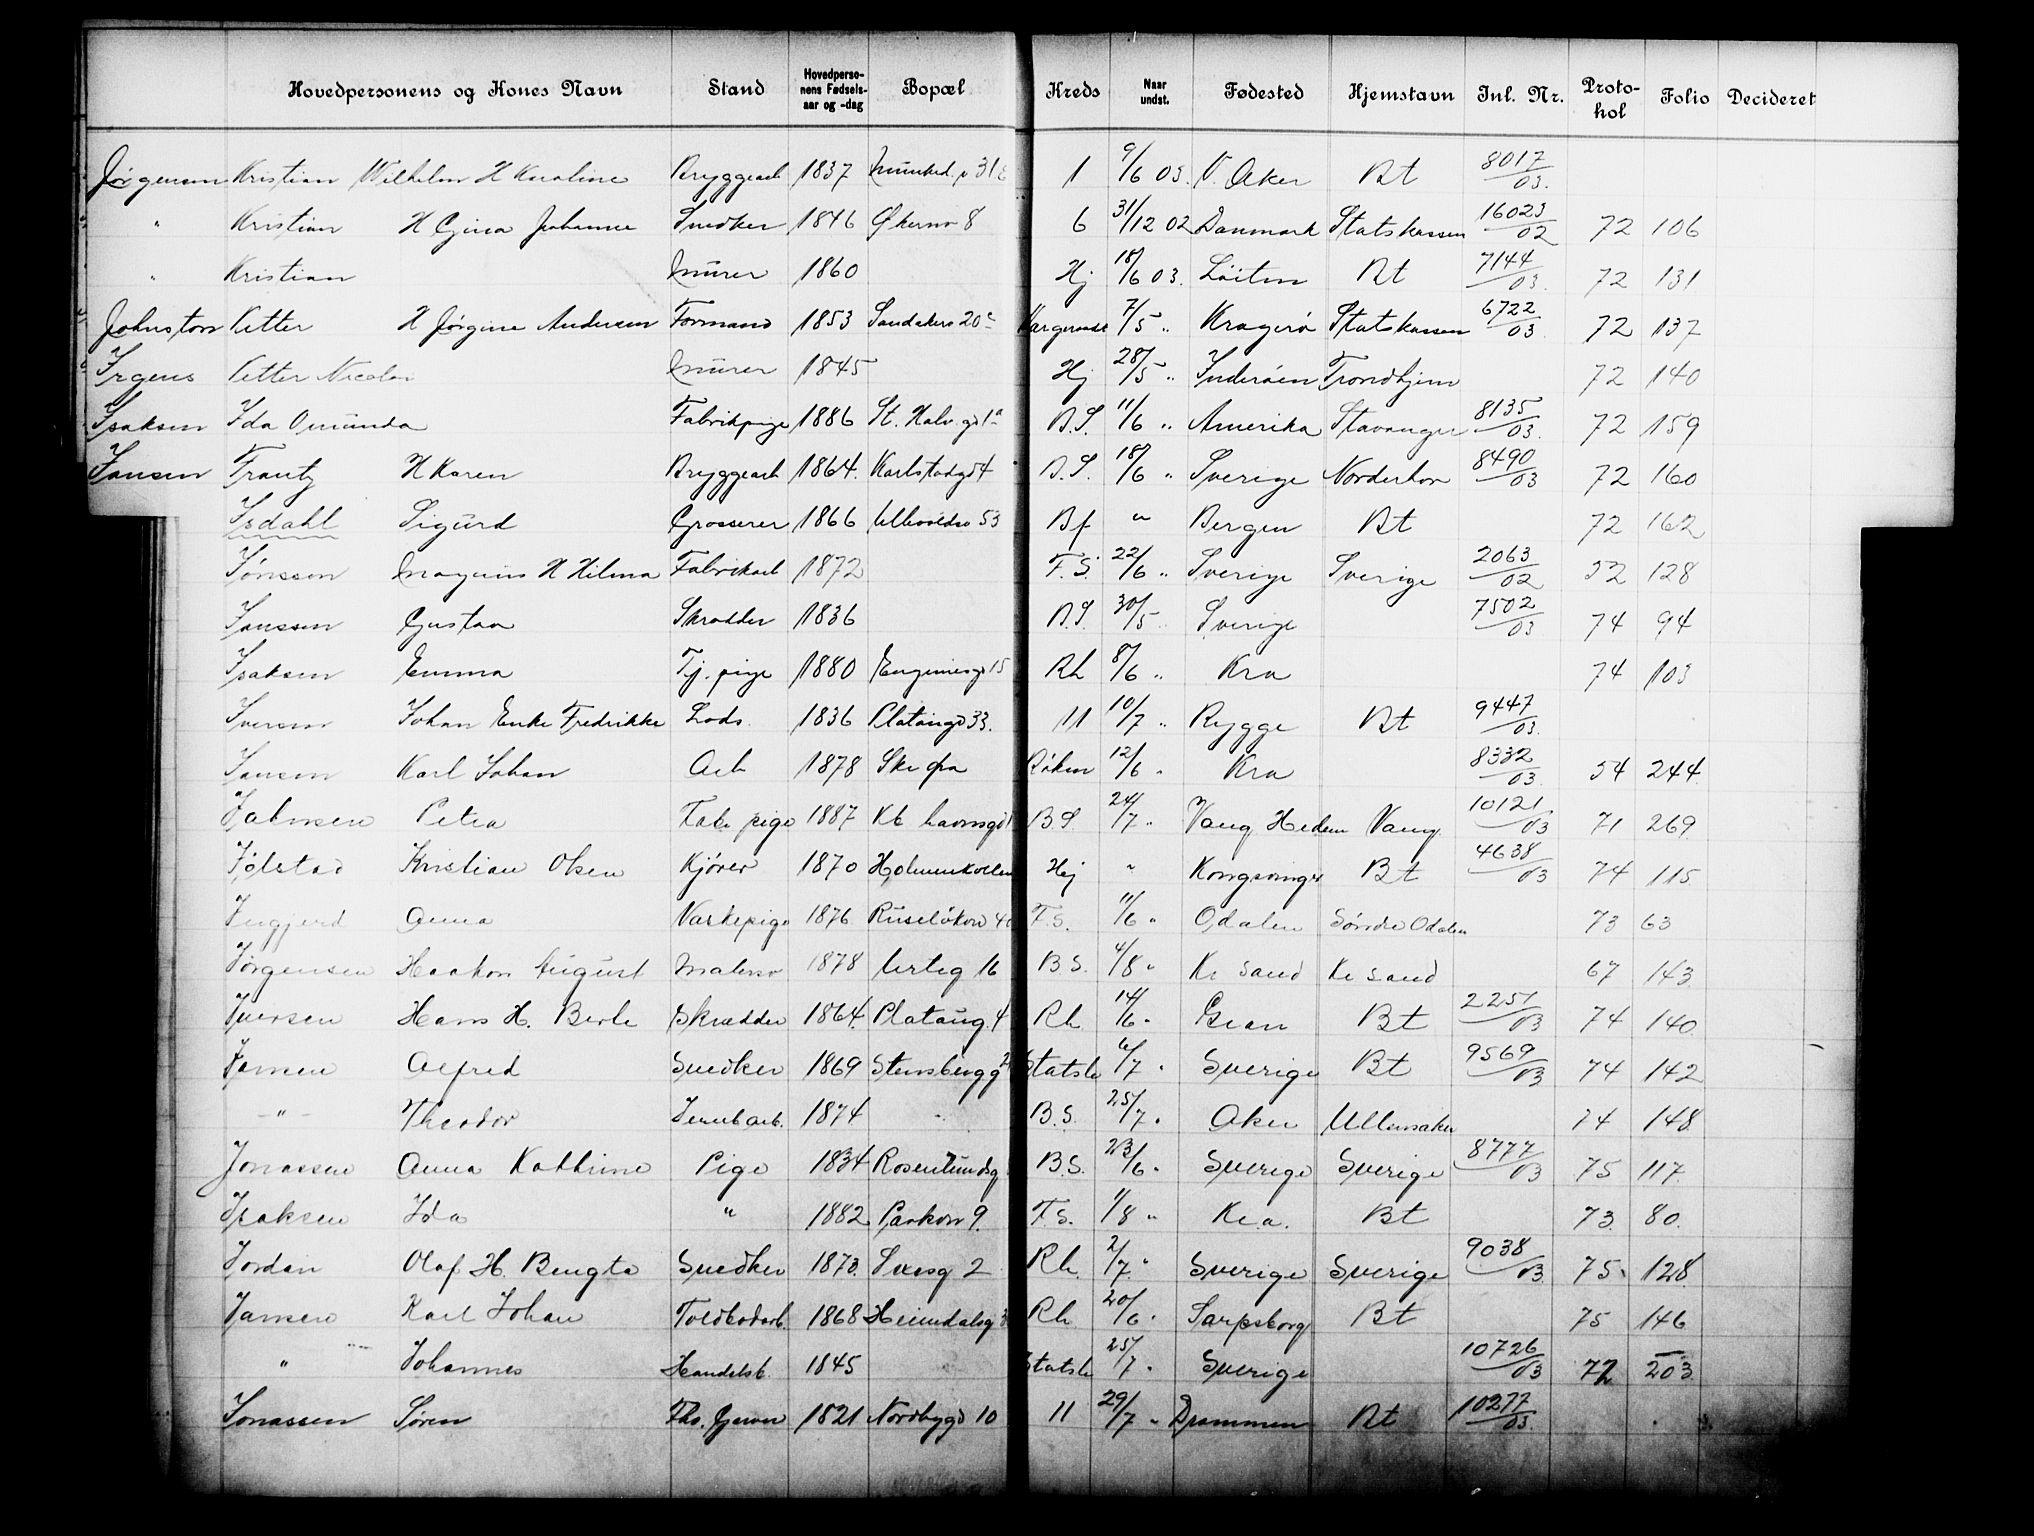 Hovedpersonens og Kones Navn Stand Hovedperso-nens Fødsels-aar og -dag Bopæl Kreds Naar undst. Fødested Hjemstavn Inl. Nr. Proto-kol Folio Decideret
Jørgensen Kristian Wilhelm H Karoline Bryggearb 1837 1 9/6 03. V. Aker Bt 8017/03.
" Kristian H Gina Johanne Snedker 1846 Økernv 8 6 31/12 02 Danmark Statskassen 16023/02 72 106
" Kristian Murer 1860 Hj 18/6 03. Løiten Bt 7144/03. 72 131
Johnston Petter H Jørgine Andersen Formand 1853 Sandakerv 20c 7/5 " Kragerø Statskassen 6722/03. 72 137
Irgens Petter Nicolai Murer 1845 Hj 28/5 " Inderøen Trondhjem 72 140
Isaksen Ida Omunda Fabrikpige 1886 St. Halv. gd 1a B.S. 11/6 " Amerika Stavanger 8135/03. 72 159
Jansen Frantz H Karen Bryggearb 1864. Karlstadgd 4 B.S. 18/6 " Sverige Norderhov 8490/03 72 160
Isdahl Sigurd Grosserer 1866 Ullevoldsv 53 Bf " Bergen Bt 72 162
Jönsson Magnus H Hilma Fabrikarb 1872 F.S. 22/6 " Sverige Sverige 2063/02 52 128
Janssen Gustav Skrædder 1836 B.S 30/5 " Sverige 7502/03 74 94
Isaksen Emma Tj. pige 1880 Eugeniesgd 15 Rh 8/6 " Kra 74 103
Iversen Johan Enke Fredrikke Lods. 1836 Platougd 33. 11 10/7 " Rygge Bt 9447/03.
Jansen Karl Johan Arb 1878 Røken 12/6 " Kra 8332/03. 54 244.
Johnsen Petra Fab. pige 1887 Kb havnsgd B.S 24/7 " Vang Hedem Vang. 10121/03 71 269.
Jølstad Kristian Olsen Kjører 1870 Holmenkollen Hj " Kongsvinger Bt 4638/03 74 115
Ingjerd Anna Vaskepige 1876 Ruseløkv F.S. 11/6 " Odalen Söndre Odalen 73 63
Jörgensen Haakon August Malersv 1878 Urteg 16 B S. 4/8 " Kr sand Kr sand 67 143
Iversen Hans H. Berte Skrædder 1864. Platoug. 4 Rh 14/6 " Gran Bt 2251/03 74 140
Jansen Alfred Snedker 1869 Stensbergg 6/7 " Sverige Bt 9569/03 74 142
" Theodor Jernb arb. 1874 B.S. 25/7. Aker Ullensaker 74 148
Jonassen Anna Kathrine Pige 1834 Rosenlundsg B.S. 23/6 " Sverige Sverige 8777/03 75 117.
Isaksen Ida " 1882 Parkvn 9. F.S. 1/8 " Kr.a. Bt 73 80.
Jordan Olaf H. Bengta Snedker 1873. Sarsg 2 Rh. 2/7 " Sverige Sverige 9038/03 75 128
Jansen Karl Johan Toldbodarb. 1868 Heimdalsg Rh 20/6 " Sarpsborg Bt 75 146
" Johannes Handelsb. 1845 25/7 " Sverige 10726/03 72 203.
Jonassen Sören 1821 Nordbygd 10 11 29/7 " Drammen Bt 10277/03.